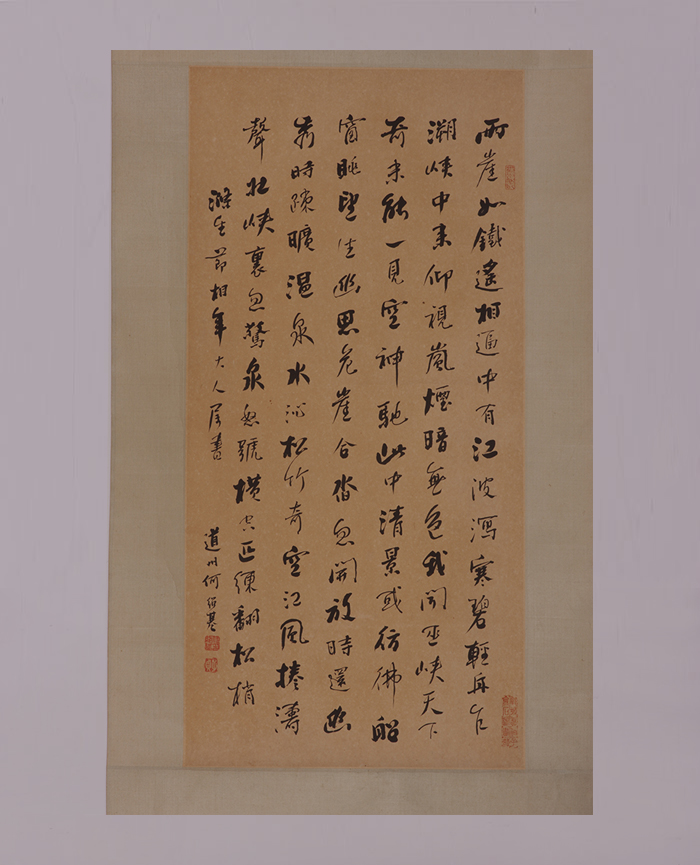 兩崖如鐵遙相逼中有江波瀉寒碧輕舟乍
溯峽中來仰視嵐煙暗無色我聞巫峽天下
奇未能一見空神馳此中清景或彷佛船
窗眺望生幽思危崖合沓忽開放時還幽
秀時疎曠溫泉水松竹奇空江風捲濤
聲壯峽裏忽驚泉怒號橫空匹練翻松梢
滌生節相年大人屬書
道州何紹基